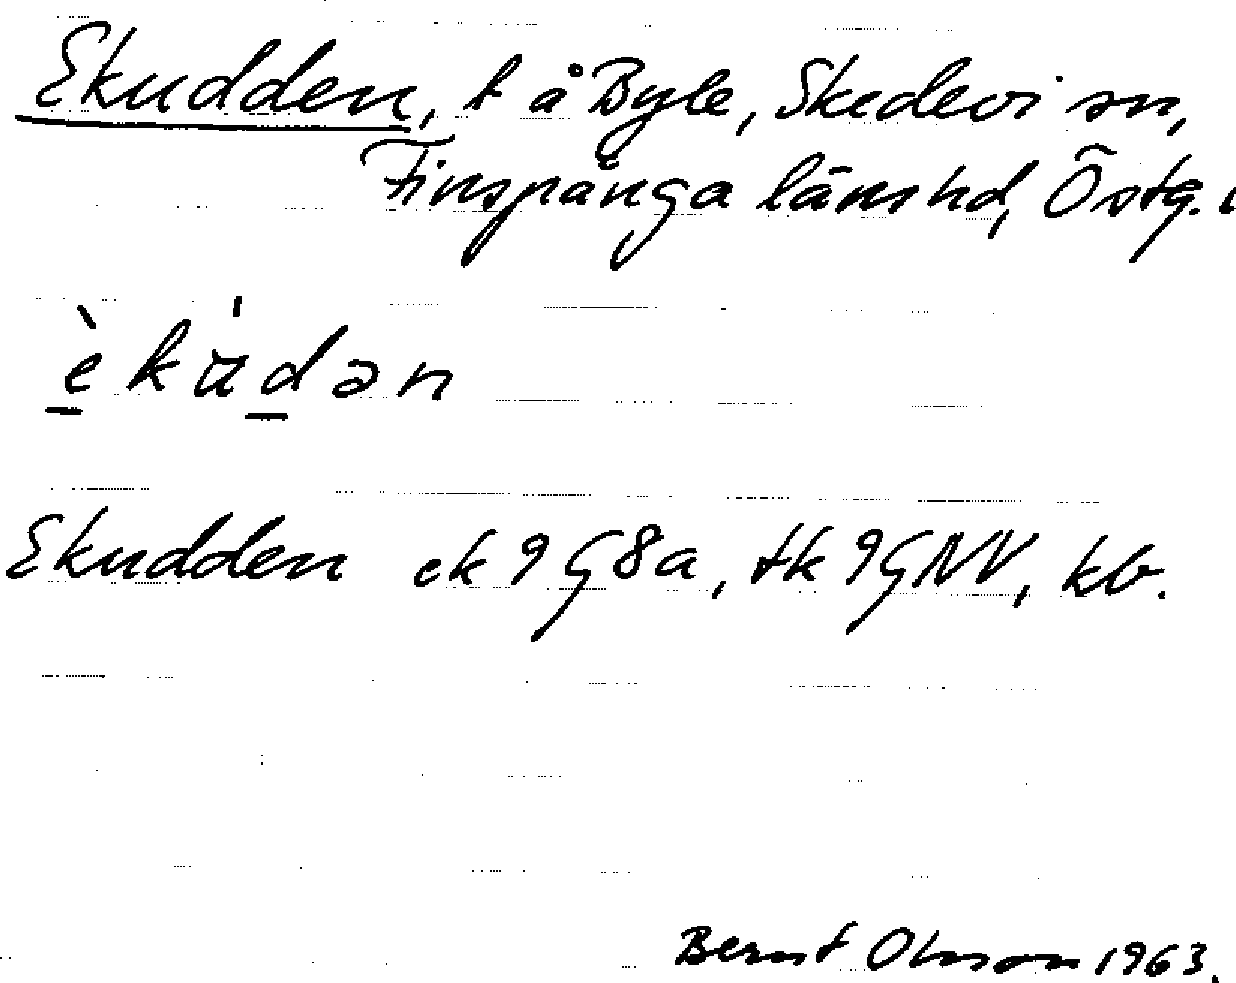 Ekudden, t å Byle, Skedevi sn,
Finspånga läns hd, Östg. l
èkú̵dən
Ekudden ek 9G8a, tk 9GNV, kb.
Bernt Olsson 1963.